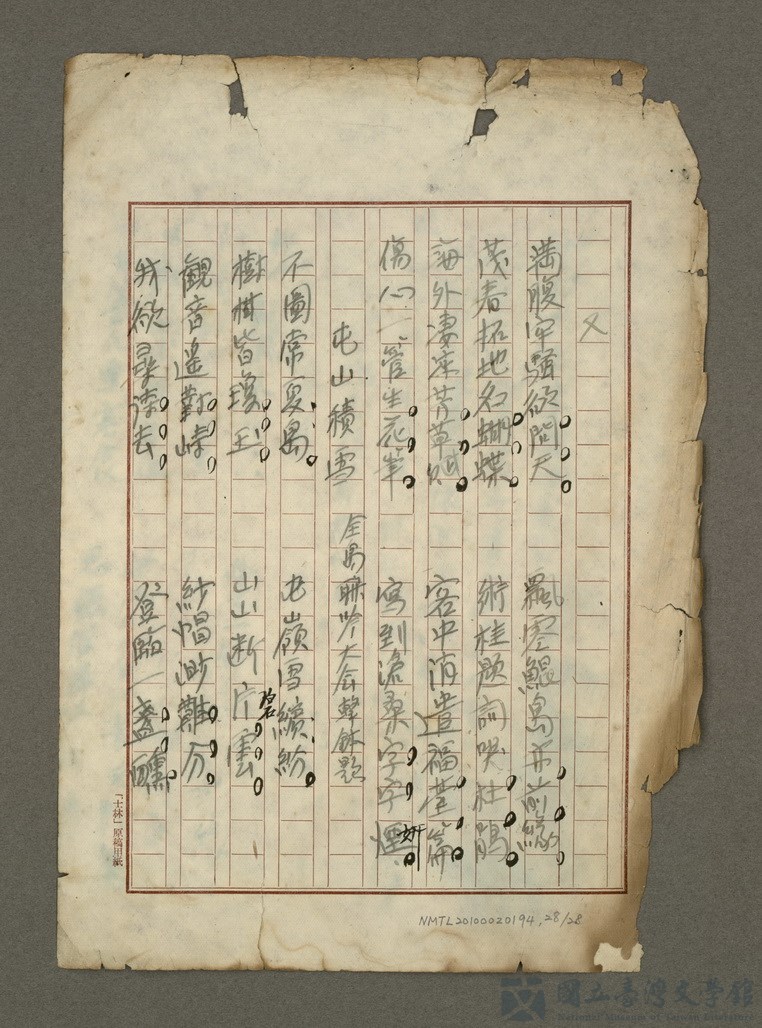 又
滿腹牢騷欲問天 飄零鯤島亦前緣
茂春拓地名蝴蝶 術桂題詞哭杜鵑
海外凄涼芳草賦 客中消遣福臺篇
傷心一管生花筆 寫到滄桑字字煙 妍
屯山積雪 全島聯吟大會擊鉢題
不圖常夏島 屯嶺雪繽紛
樹樹皆瓊玉 山山斷片雲
觀音遙對峙 紗帽渺難分
我欲尋詩去 登臨一盞醺
「士林」原稿用紙
NMTL20100020194, 28/28
國立臺灣文學館
National Museum of Taiwan Literature